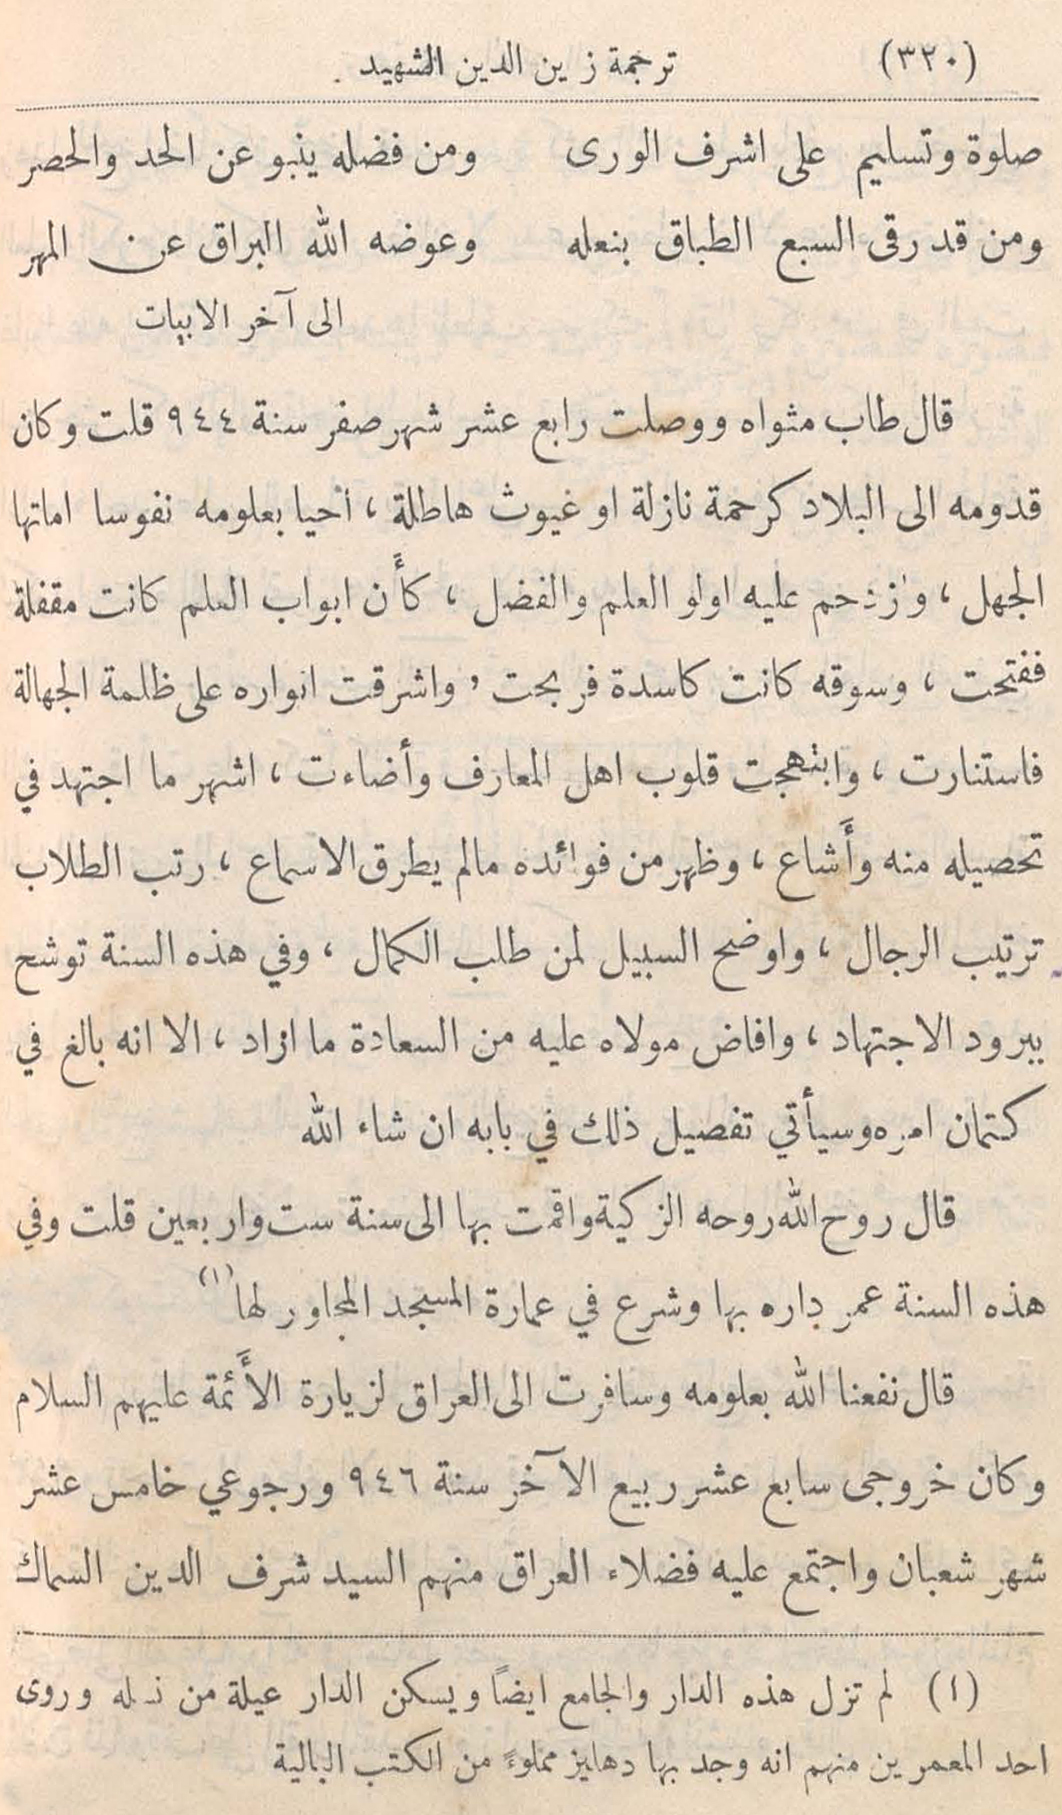 (٣٢٠) ترجمة زين الدين الشهيد
صلوة وتسليم على اشرف الورى ومن فضله ينبو عن الحد والحصر
ومن قد رقى السبع الطباق بنعله وعوضه الله البراق عن المهر
الى آخر الابيات
قال طاب مثواه ووصلت رابع عشر شهر صفر سنة ٩٤٤ قلت وكان
قدومه الى البلاد كرحمة نازلة او غيوث هاطلة ، احيا بعلومه نفوسا اماتها
الجهل ، وازدحم عليه اولو العلم والفضل ، كأَن ابواب العلم كانت مقفلة
ففتحت ، وسوقه كانت كاسدة فربحت ، واشرقت انواره على ظلمة الجهالة
فاستنارت ، وابتهجت قلوب اهل المعارف وأضاءت ، اشهر ما اجتهد في
تحصيله منه وأَشاع ، وظهر من فوائده مالم يطرق الاسماع ، رتب الطلاب
ترتيب الرجال ، واوضح السبيل لمن طلب الكمال ، وفي هذه السنة توشح
ببرود الاجتهاد ، وافاض مولاه عليه من السعادة ما اراد ، الا انه بالغ في
كتمان امره وسيأتي تفصيل ذلك في بابه ان شاء الله
قال روح الله روحه الزكية واقمت بها الى سنة ست واربعين قلت وفي
هذه السنة عمر داره بها وشرع في عمارة المسجد المجاور لها (١)
قال نفعنا الله بعلومه وسافرت الى العراق لزيارة الأَئمة عليهم السلام
وكان خروجى سابع عشر ربيع الآخر سنة ٩٤٦ ورجوعي خامس عشر
شهر شعبان واجتمع عليه فضلاء العراق منهم السيد شرف الدين السماك
(١) لم تزل هذه الدار والجامع ايضاً ويسكن الدار عيلة من نسله وروى
احد المعمرين منهم انه وجد بها دهليز مملوءً من الكتب البالية